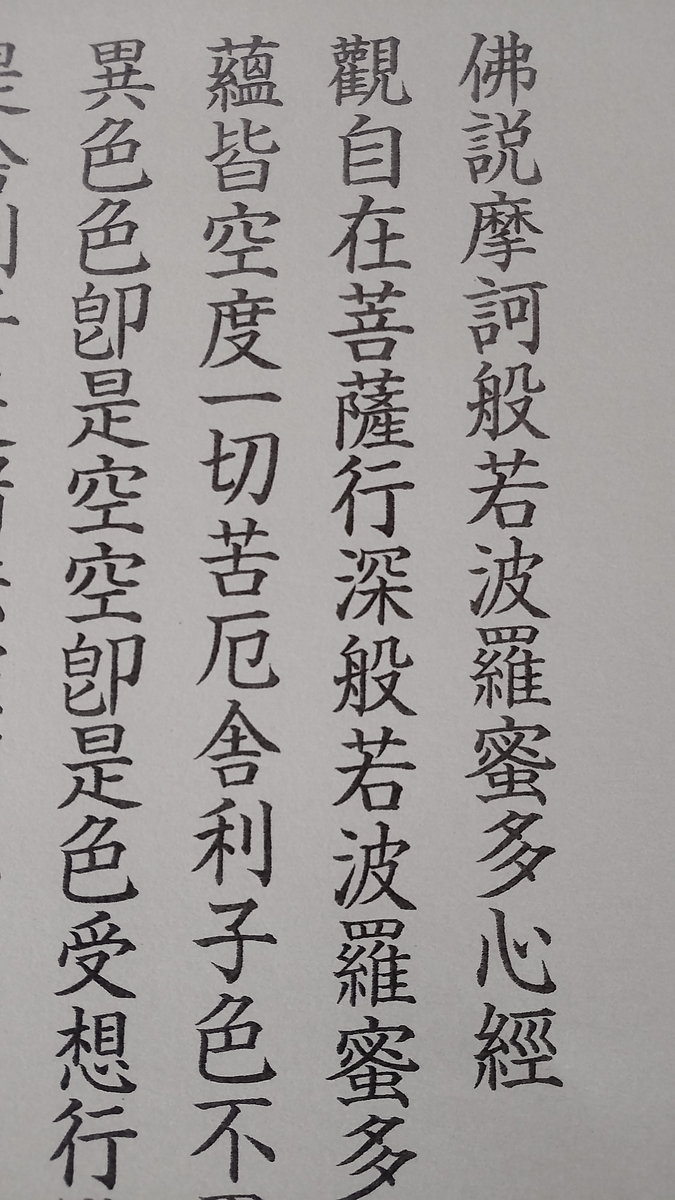 佛説摩訶般若波羅蜜多心經
觀自在菩薩行深般若波羅蜜多
蘊皆空度一切苦厄舎利子色不
異色色卽是空空卽是色受想行